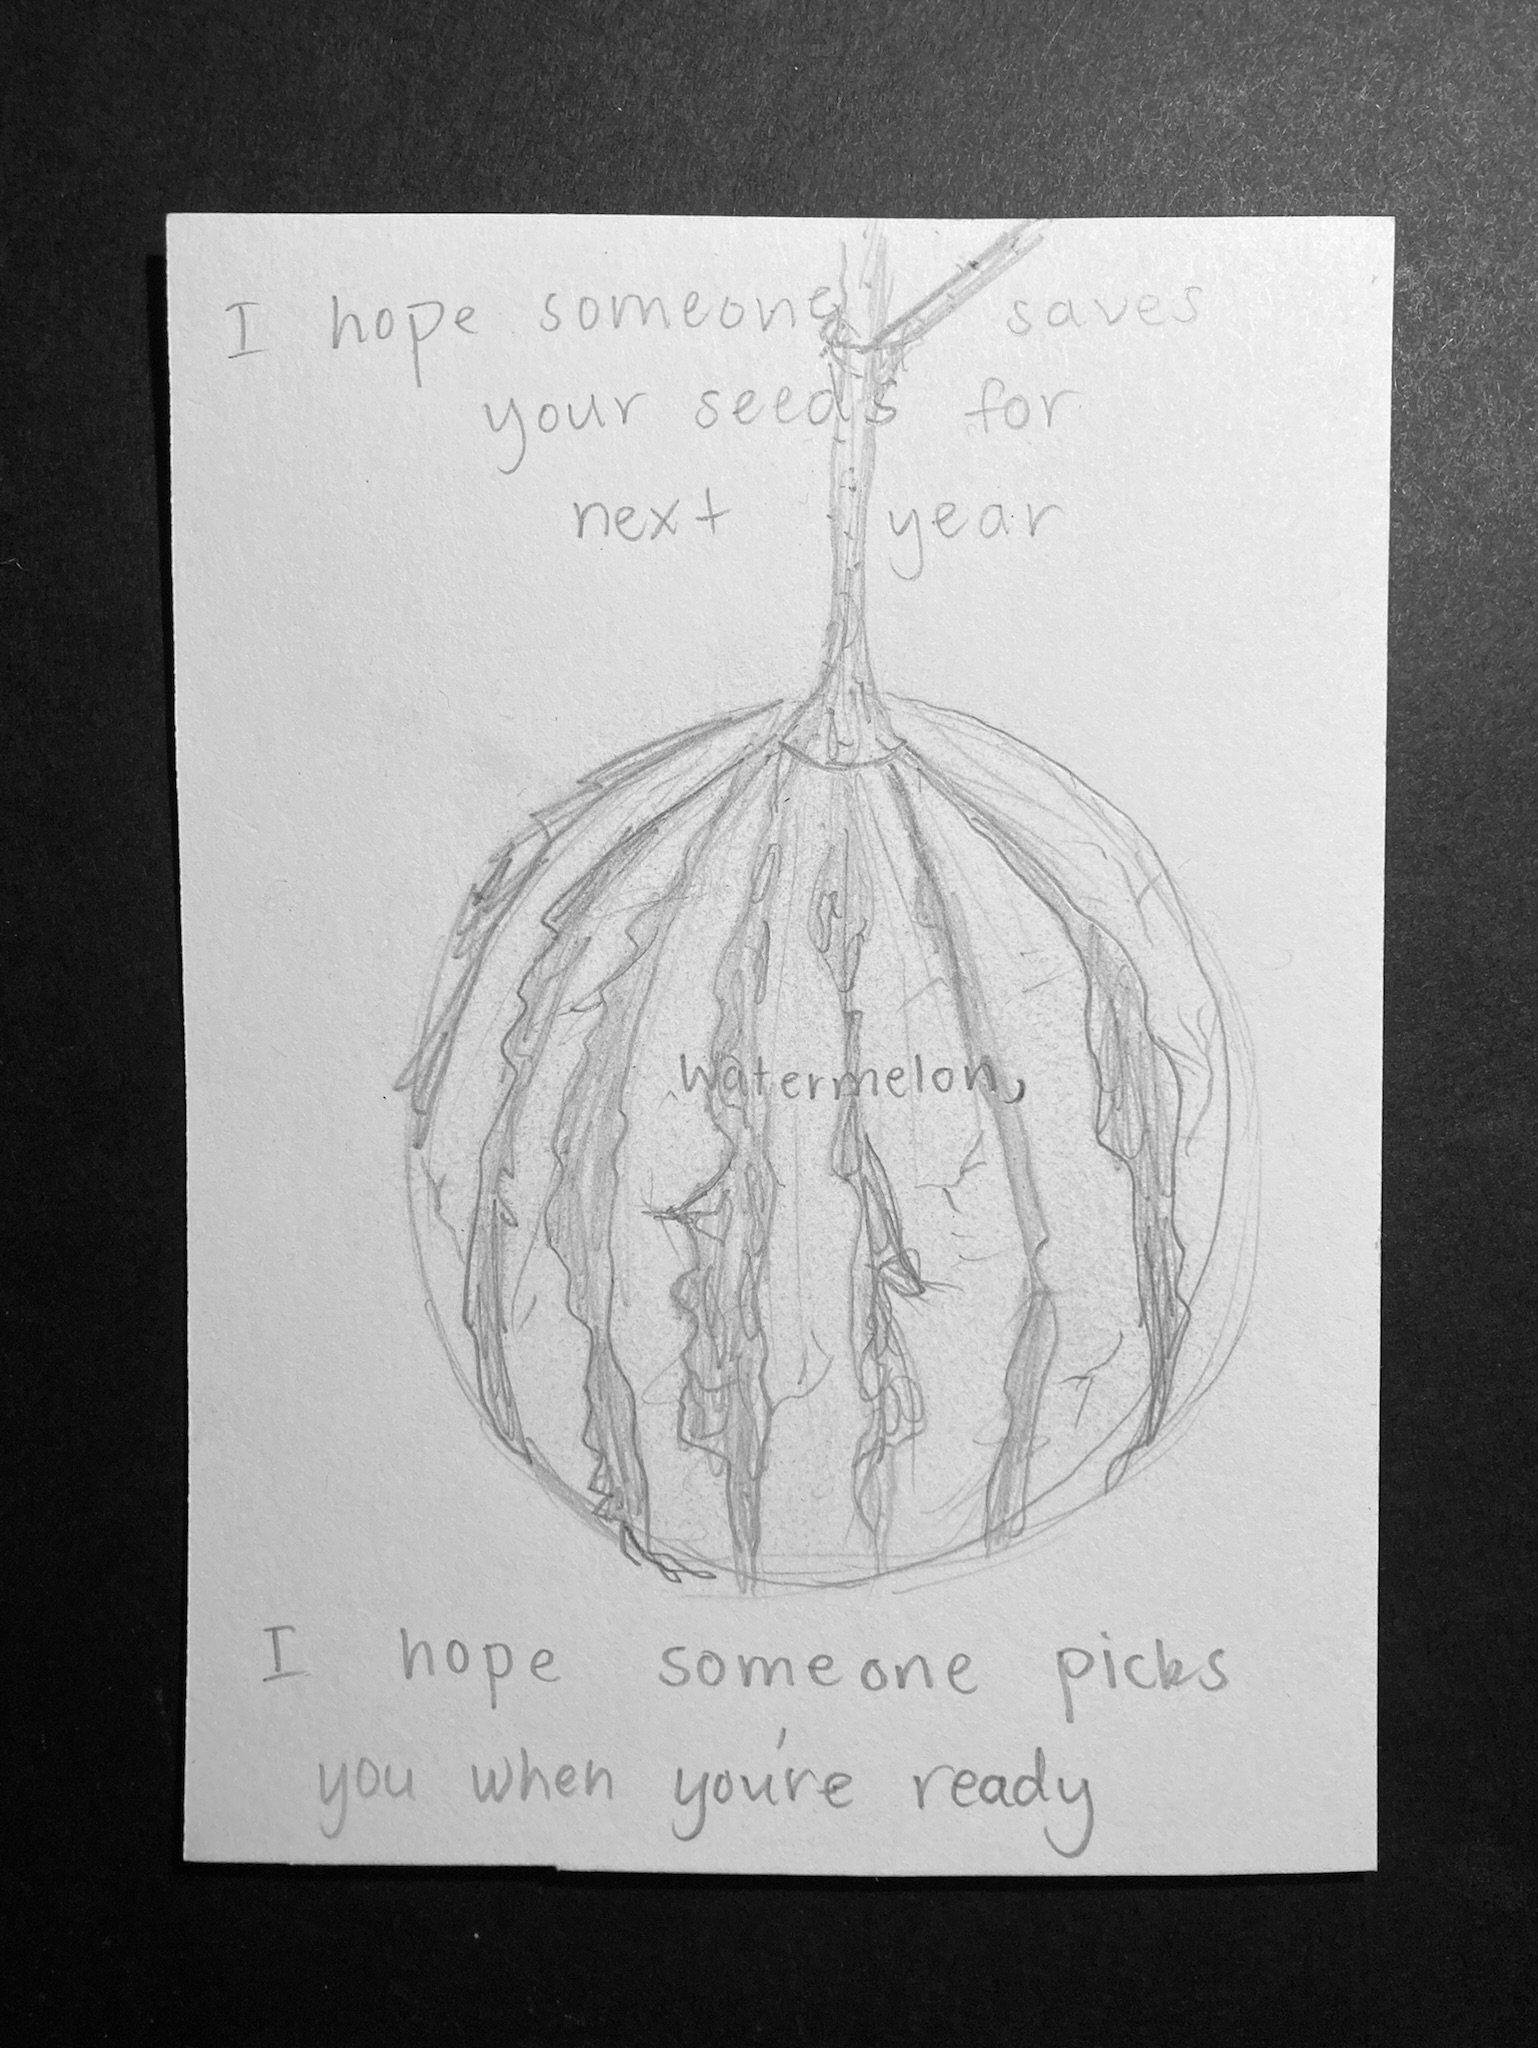 I hope someone saves
your seeds for
next year
watermelon,
I hope someone picks
you when you're ready